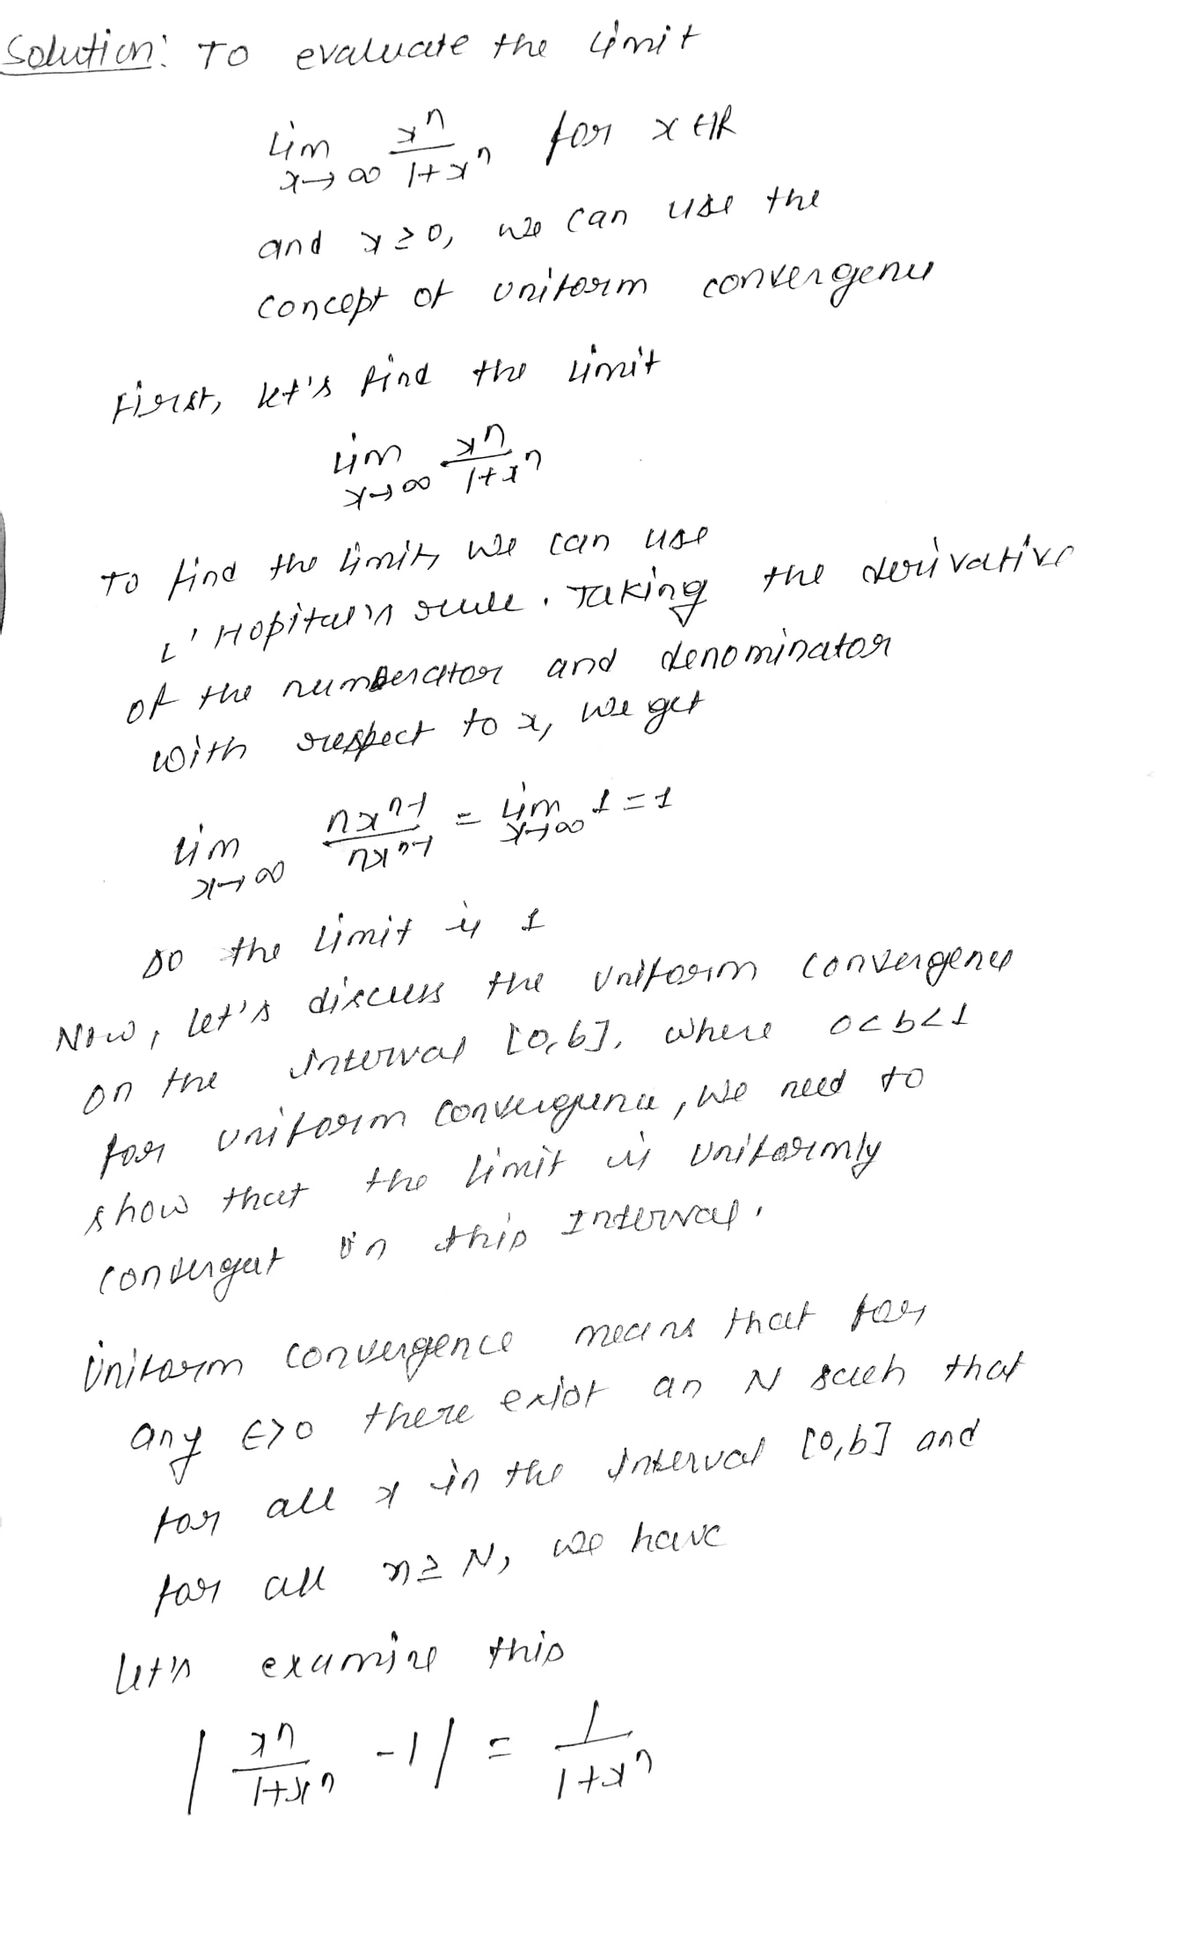 Solution: To evaluate the limit
lim x→∞ x^n/(1+x^n) for x∈ℝ
and x≥0, we can use the
concept of uniform convergence
First, let's find the limit
lim x→∞ x^n/(1+x^n)
To find the limit, we can use
L'Hopital's rule. Taking the derivative
of the numberator and denominator
with respect to x, we get
lim x→∞ nx^(n-1)/nx^(n-1) = lim x→∞ 1 = 1
so the limit is 1
Now, let's discuss the uniform convergence
on the interval [0,b], where 0<b<1
for uniform convergence, we need to
show that the limit is uniformly
convergat on this Interval.
Uniform convergence means that for
any ϵ>0 there exist an N such that
for all x in the interval [0,b] and
for all n≥N, we have
let's examine this
|x^n/(1+x^n) -1| = 1/(1+x^n)